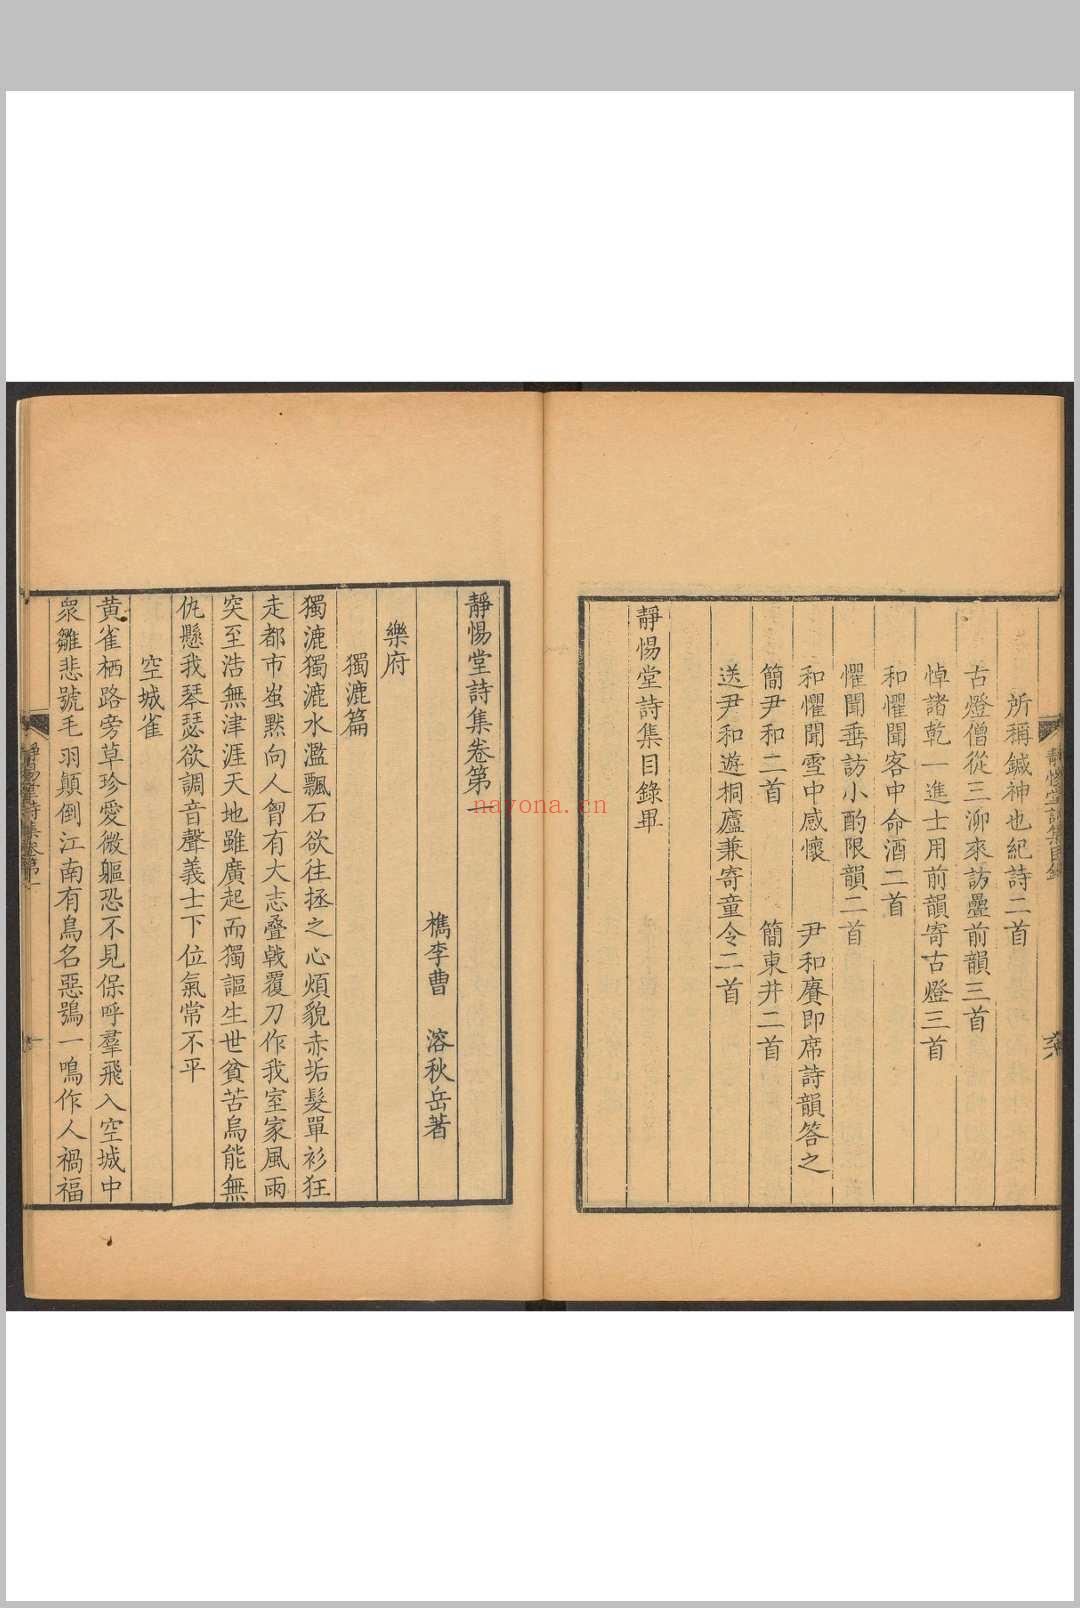 所稱鍼神也紀詩二首
古燈僧從三泖來訪疊前韻三首
悼諸乾一進士用前韻寄古燈三首
和懼聞客中命酒二首
懼聞垂訪小酌限韻二首
和懼聞雪中感懷 尹和賡即席詩韻答之
簡尹和二首 簡東井二首
送尹和遊桐廬兼寄童令二首
靜惕堂詩集目錄畢
靜惕堂詩集目錄
靜惕堂詩集卷第一
檇李曹 溶秋岳著
樂府
獨漉篇
獨漉獨漉水濫飄石欲往拯之心煩貌赤垢髮單衫狂
走都市蚩黙向人胷有大志叠戟覆刀作我室家風雨
突至浩無津涯天地雖廣起而獨謳生世貧苦烏能無
仇懸我琴瑟欲調音聲義士下位氣常不平
空城雀
黄雀栖路旁草珍愛微軀恐不見保呼羣飛入空城中
衆雛悲號毛羽顛倒江南有鳥名惡鴞一鳴作人禍福
靜惕堂詩集卷第一
nayona.cn